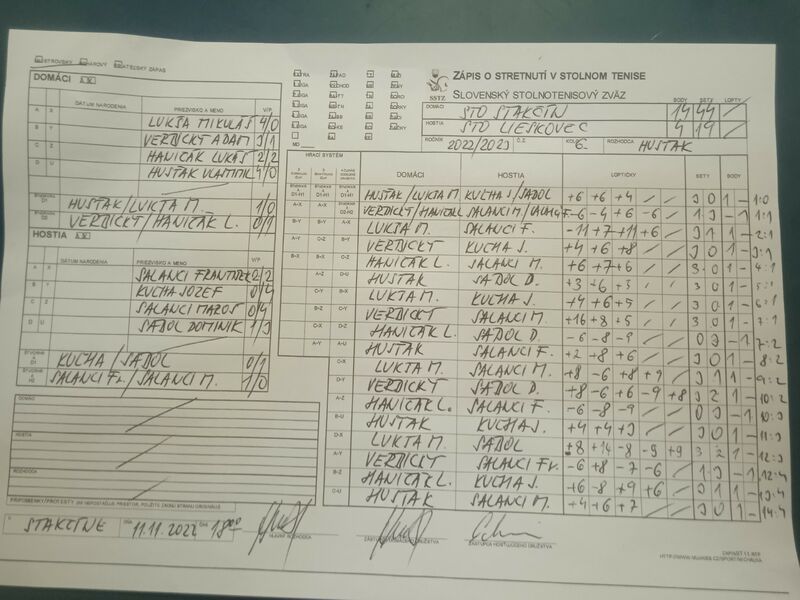 ZÁPIS O STRETNUTÍ V STOLNOM TENISE
SLOVENSKÝ STOLNOTENISOVÝ ZVÄZ
SSTZ
BODY SETY LOPTY
DOMÁCI STO STAKČÍN 14 44
HOSTIA STO LIESKOVEC 4 19
ROČNÍK 2022/2023 Č.Z. KOLO 6. ROZHODCA HUSŤAK
DOMÁCI A X
DÁTUM NARODENIA PRIEZVISKO A MENO V/P
A X LUKŤA MIKULÁŠ 4/0
B Y VERBICKÝ ADAM 3/1
C Z HANIČÁK LUKÁŠ 2/2
D U HUSŤAK VLASTIMIL 4/0
HUSŤAK/LUKTA M. 1/0
VERBICKÝ/HANIČÁK L. 0/1
HOSTIA A X
DÁTUM NARODENIA PRIEZVISKO A MENO V/P
A X SALANCI FRANTIŠEK 2/2
B Y KUCHA JOZEF 0/4
C Z SALANCI MAROŠ 0/4
D U SABOL DOMINIK 1/3
KUCHA/SABOL 0/1
SALANCI Fr./SALANCI M. 1/0
DOMÁCI
HOSTIA
ROZHODCA
HRACÍ SYSTÉM DOMÁCI HOSTIA LOPTIČKY SETY BODY
HUSŤAK/LUKTA M. KUCHA J/SABOL +6 +6 +4 / / 3 0 1 - 1:0
VERBICKÝ/HANIČÁK SALANCI M/SALANCI F. -6 -4 +6 -6 / 1 3 - 1 1:1
LUKTA M. SALANCI F. -11 +7 +11 +6 / 3 1 1 - 2:1
VERBICKÝ KUCHA J. +4 +6 +8 / / 3 0 1 - 3:1
HANIČÁK L. SALANCI M. +6 +7 +6 / / 3 0 1 - 4:1
HUSŤAK SABOL D. +3 +6 +3 / / 3 0 1 - 5:1
LUKTA M. KUCHA J. +4 +6 +5 / / 3 0 1 - 6:1
VERBICKÝ SALANCI M. +16 +8 +5 / / 3 0 1 - 7:1
HANIČÁK L. SABOL D. -6 -8 -9 / / 0 3 - 1 7:2
HUSŤAK SALANCI F. +2 +8 +6 / / 3 0 1 - 8:2
LUKTA M. SALANCI M. +8 -6 +8 +9 / 3 1 1 - 9:2
VERBICKÝ SABOL D. +8 -6 +6 -9 +8 3 2 1 - 10:2
HANIČÁK L. SALANCI F. -6 -8 -9 / / 0 3 - 1 10:3
HUSŤAK KUCHA J. +4 +4 +3 / / 3 0 1 - 11:3
LUKTA M. SABOL +8 +14 -8 -9 +9 3 2 1 - 12:3
VERBICKÝ SALANCI Fr. -6 +8 -7 -6 / 1 3 - 1 12:4
HANIČÁK L. KUCHA J. +6 -8 +9 +6 / 3 1 1 - 13:4
HUSŤAK SALANCI M. +4 +6 +7 / / 3 0 1 - 14:4
V STAKČÍNE DŇA 11.11.2022 ČAS 18:00
HLAVNÝ ROZHODCA
ZÁSTUPCA DOMÁCEHO DRUŽSTVA
ZÁSTUPCA HOSŤUJÚCEHO DRUŽSTVA